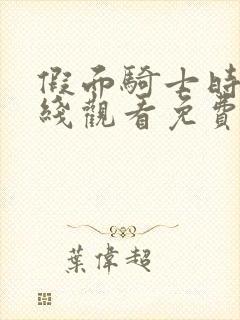 假面騎士時
綫觀看免費
葉偉超